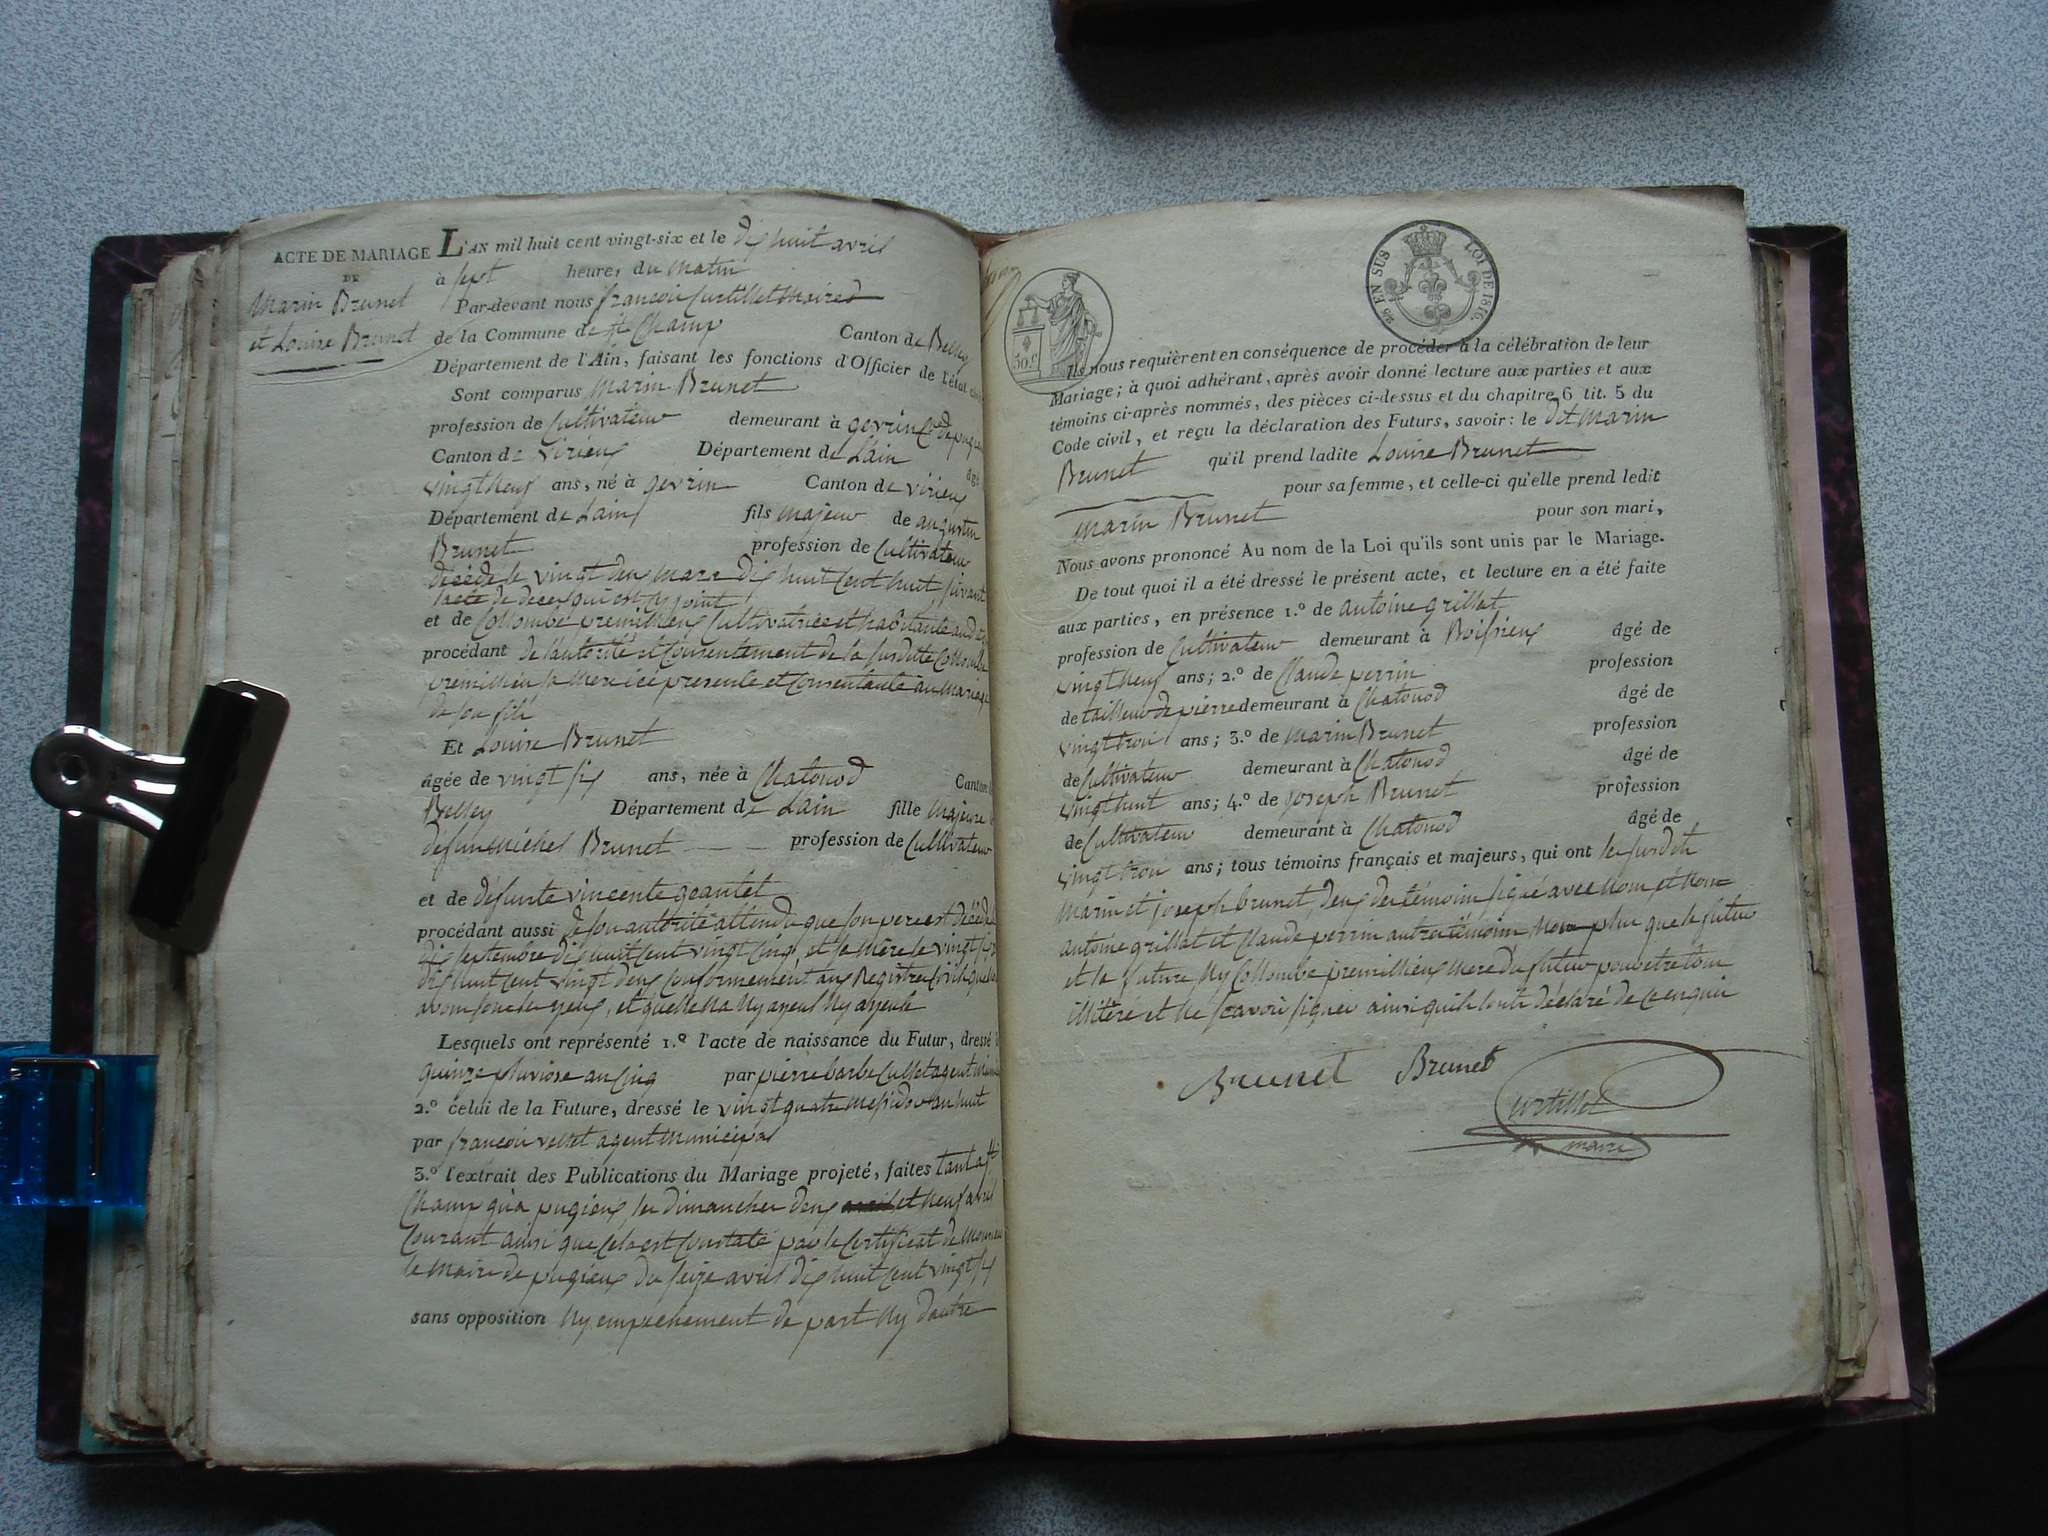 ACTE DE MARIAGE
DE
Marin Brunet
et Louise Brunet
L'AN mil huit cent vingt-six et le dix huit avril
à sept heures du matin
Par-devant nous françois Curtillet Maire
de la Commune de St Champ Canton de Belley
Département de l'Ain, faisant les fonctions d'Officier de l'état civil
Sont comparus Marin Brunet
profession de Cultivateur demeurant à gevrin
Canton de virieux Département de Lain âgé
vingt neuf ans, né à gevrin Canton de virieux
Département de Lain fils majeur de augustin
Brunet profession de Cultivateur
décédé le vingt deux mars dix huit cent huit, suivant
lacte de deces qui est cy joint
et de Collombe premillieux Cultivatrice et habitante
procédant de lautorité et Consentement de la susditte Collombe
premillieux sa mere icé presente et Consentante au mariage
de son fils
Et Louise Brunet
âgée de vingt six ans, née à Chatonod Canton
Belley Département de Lain fille majeure
defunt michel Brunet profession de Cultivateur
et de défunte vincente
procédant aussi de son autorité attendu que son pere est décédé
dix septembre dix huit cent vingt cinq, et sa mère le vingt
dix huit cent vingt deux Conformement aux Registres
avons sous les yeux, et quelle na Ny ayeul Ny ayeule
Lesquels ont représenté 1.º l'acte de naissance du Futur, dressé
quinze pluviose an cinq par pierre barbe Cullet agent
2.º celui de la Future, dressé le vingt quatre messidor an huit
par françois agent municipal
3.º l'extrait des Publications du Mariage projeté, faites tant a St
Champ qu'a pugieux les dimanches deux et neuf avril
Courant ainsi que cela est Constaté par le Certificat de Monsieur
le maire de pugieux du seize avril dix huit cent vingt six
sans opposition Ny empechement de part Ny dautre
50 c
25 EN SUS LOI DE 1816
Ils nous requièrent en conséquence de procéder à la célébration de leur
Mariage; à quoi adhérant, après avoir donné lecture aux parties et aux
témoins ci-après nommés, des pièces ci-dessus et du chapitre 6 tit. 5 du
Code civil, et reçu la déclaration des Futurs, savoir: le dit Marin
Brunet qu'il prend ladite Louise Brunet
pour sa femme, et celle-ci qu'elle prend ledit
Marin Brunet pour son mari,
Nous avons prononcé Au nom de la Loi qu'ils sont unis par le Mariage.
De tout quoi il a été dressé le présent acte, et lecture en a été faite
aux parties, en présence 1.º de antoine grillat
profession de Cultivateur demeurant à âgé de
vingt neuf ans; 2.º de Claude perrin profession
de tailleur de pierre demeurant à Chatonod âgé de
vingt trois ans; 3.º de Marin Brunet profession
de Cultivateur demeurant à Chatonod âgé de
vingt huit ans; 4.º de joseph Brunet profession
de Cultivateur demeurant à Chatonod âgé de
vingt trois ans; tous témoins français et majeurs, qui ont les susdits
Marin et joseph brunet, deux des témoins signé avec nous et non
antoine grillat et Claude perrin autres témoins Non plus que le futur
et la future Ny Collombe premillieux mere du futur pour etre tous
illitéré et Ne scavoir signer ainsi quils lont déclaré de ce enquis
Brunet Brunet
Curtillet
maire